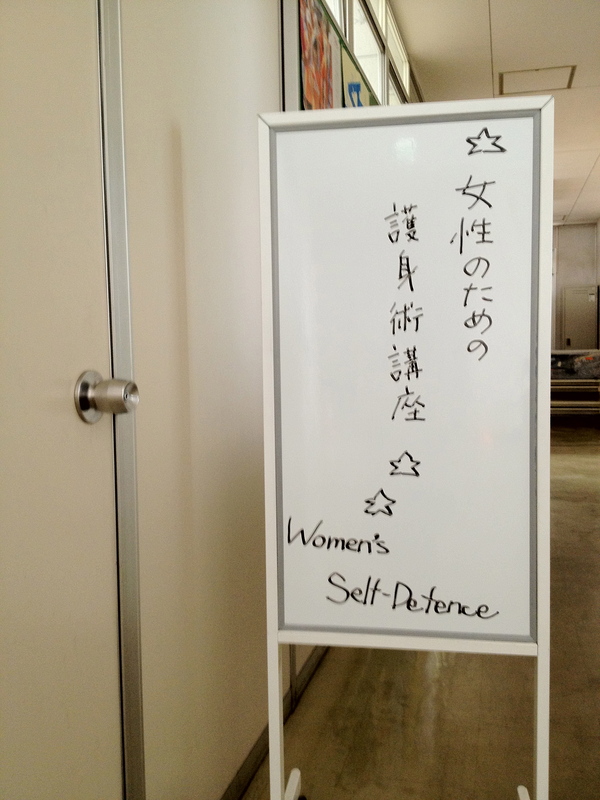 ☆女性のための
護身術講座☆
☆
Women's
Self-Defence